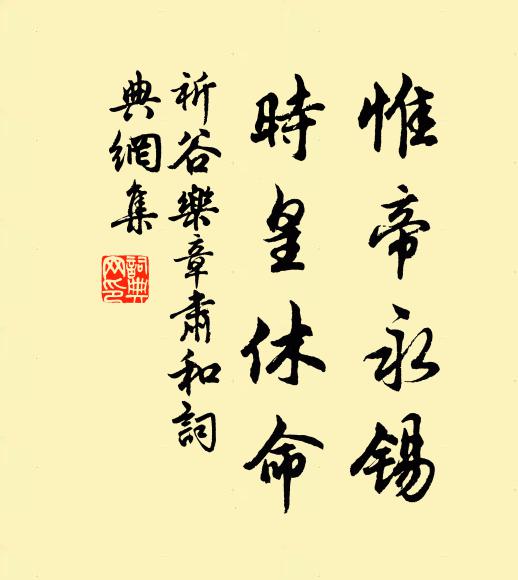 惟帝永锡
時皇休命
祈谷樂章肅和詞
典網集
詞典网印